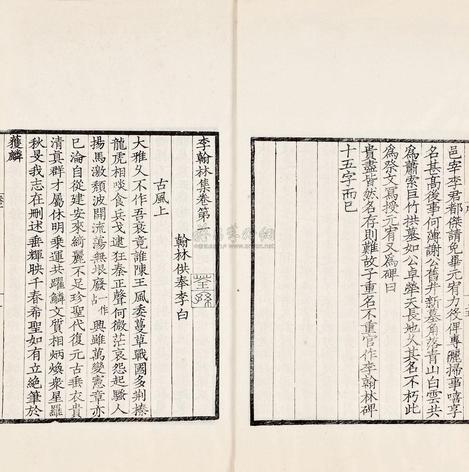 邑宰李君都傑請免畢元宥力役俾專灑掃事嘻享
名甚高後事何薄謝公舊井新墓角落青山白雲共
為蕭索巨竹拱墓如公卓犖天長地久其名不朽此
為祭文寫授元宥又為碑曰
貴盡皆然名存則難故予重名不重官作李翰林碑
十五字而已
李翰林集卷第一
翰林供奉李白
古風上
大雅久不作吾衰竟誰陳王風委蔓草戰國多荆榛
龍虎相啖食兵戈逮狂秦正聲何微茫哀怨起騷人
揚馬激頹波開流蕩無垠廢一作興雖萬變憲章亦
已淪自從建安來綺麗不足珍聖代復元古垂衣貴
清真群才屬休明乘運共躍鱗文質相炳煥衆星羅
秋旻我志在刪述垂輝映千春希聖如有立絕筆於
獲麟